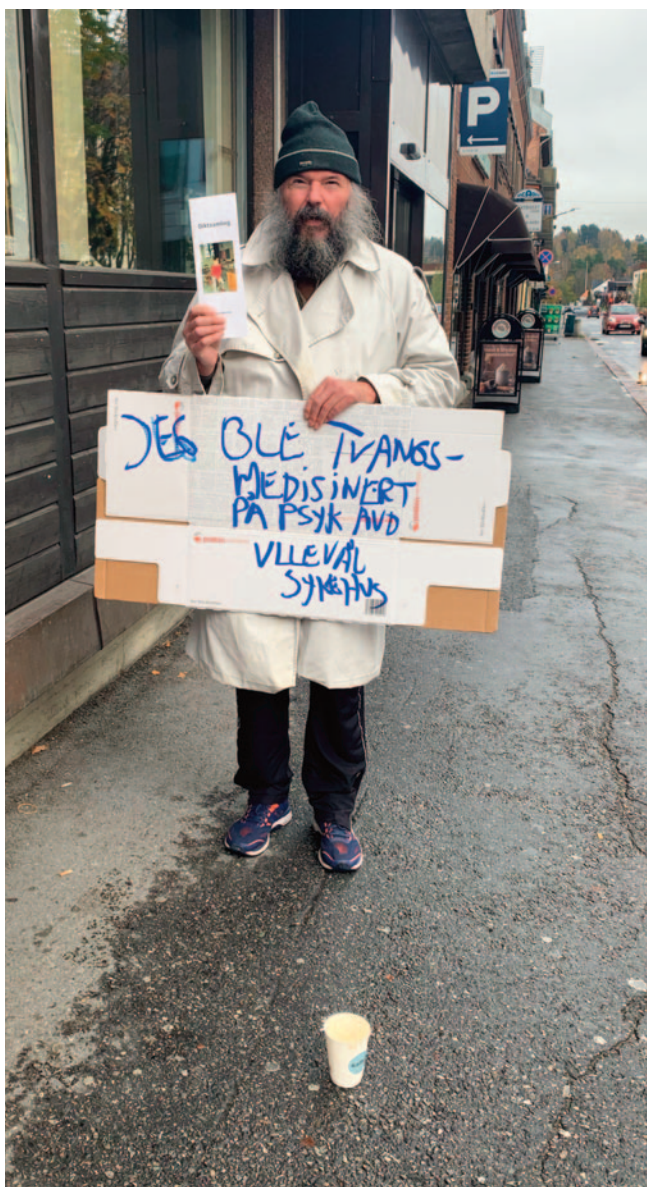 P
Diktsamling
JEG BLE TVANGS-
MEDISINERT
PÅ PSYK AVD
ULLEVÅL
SYKEHUS